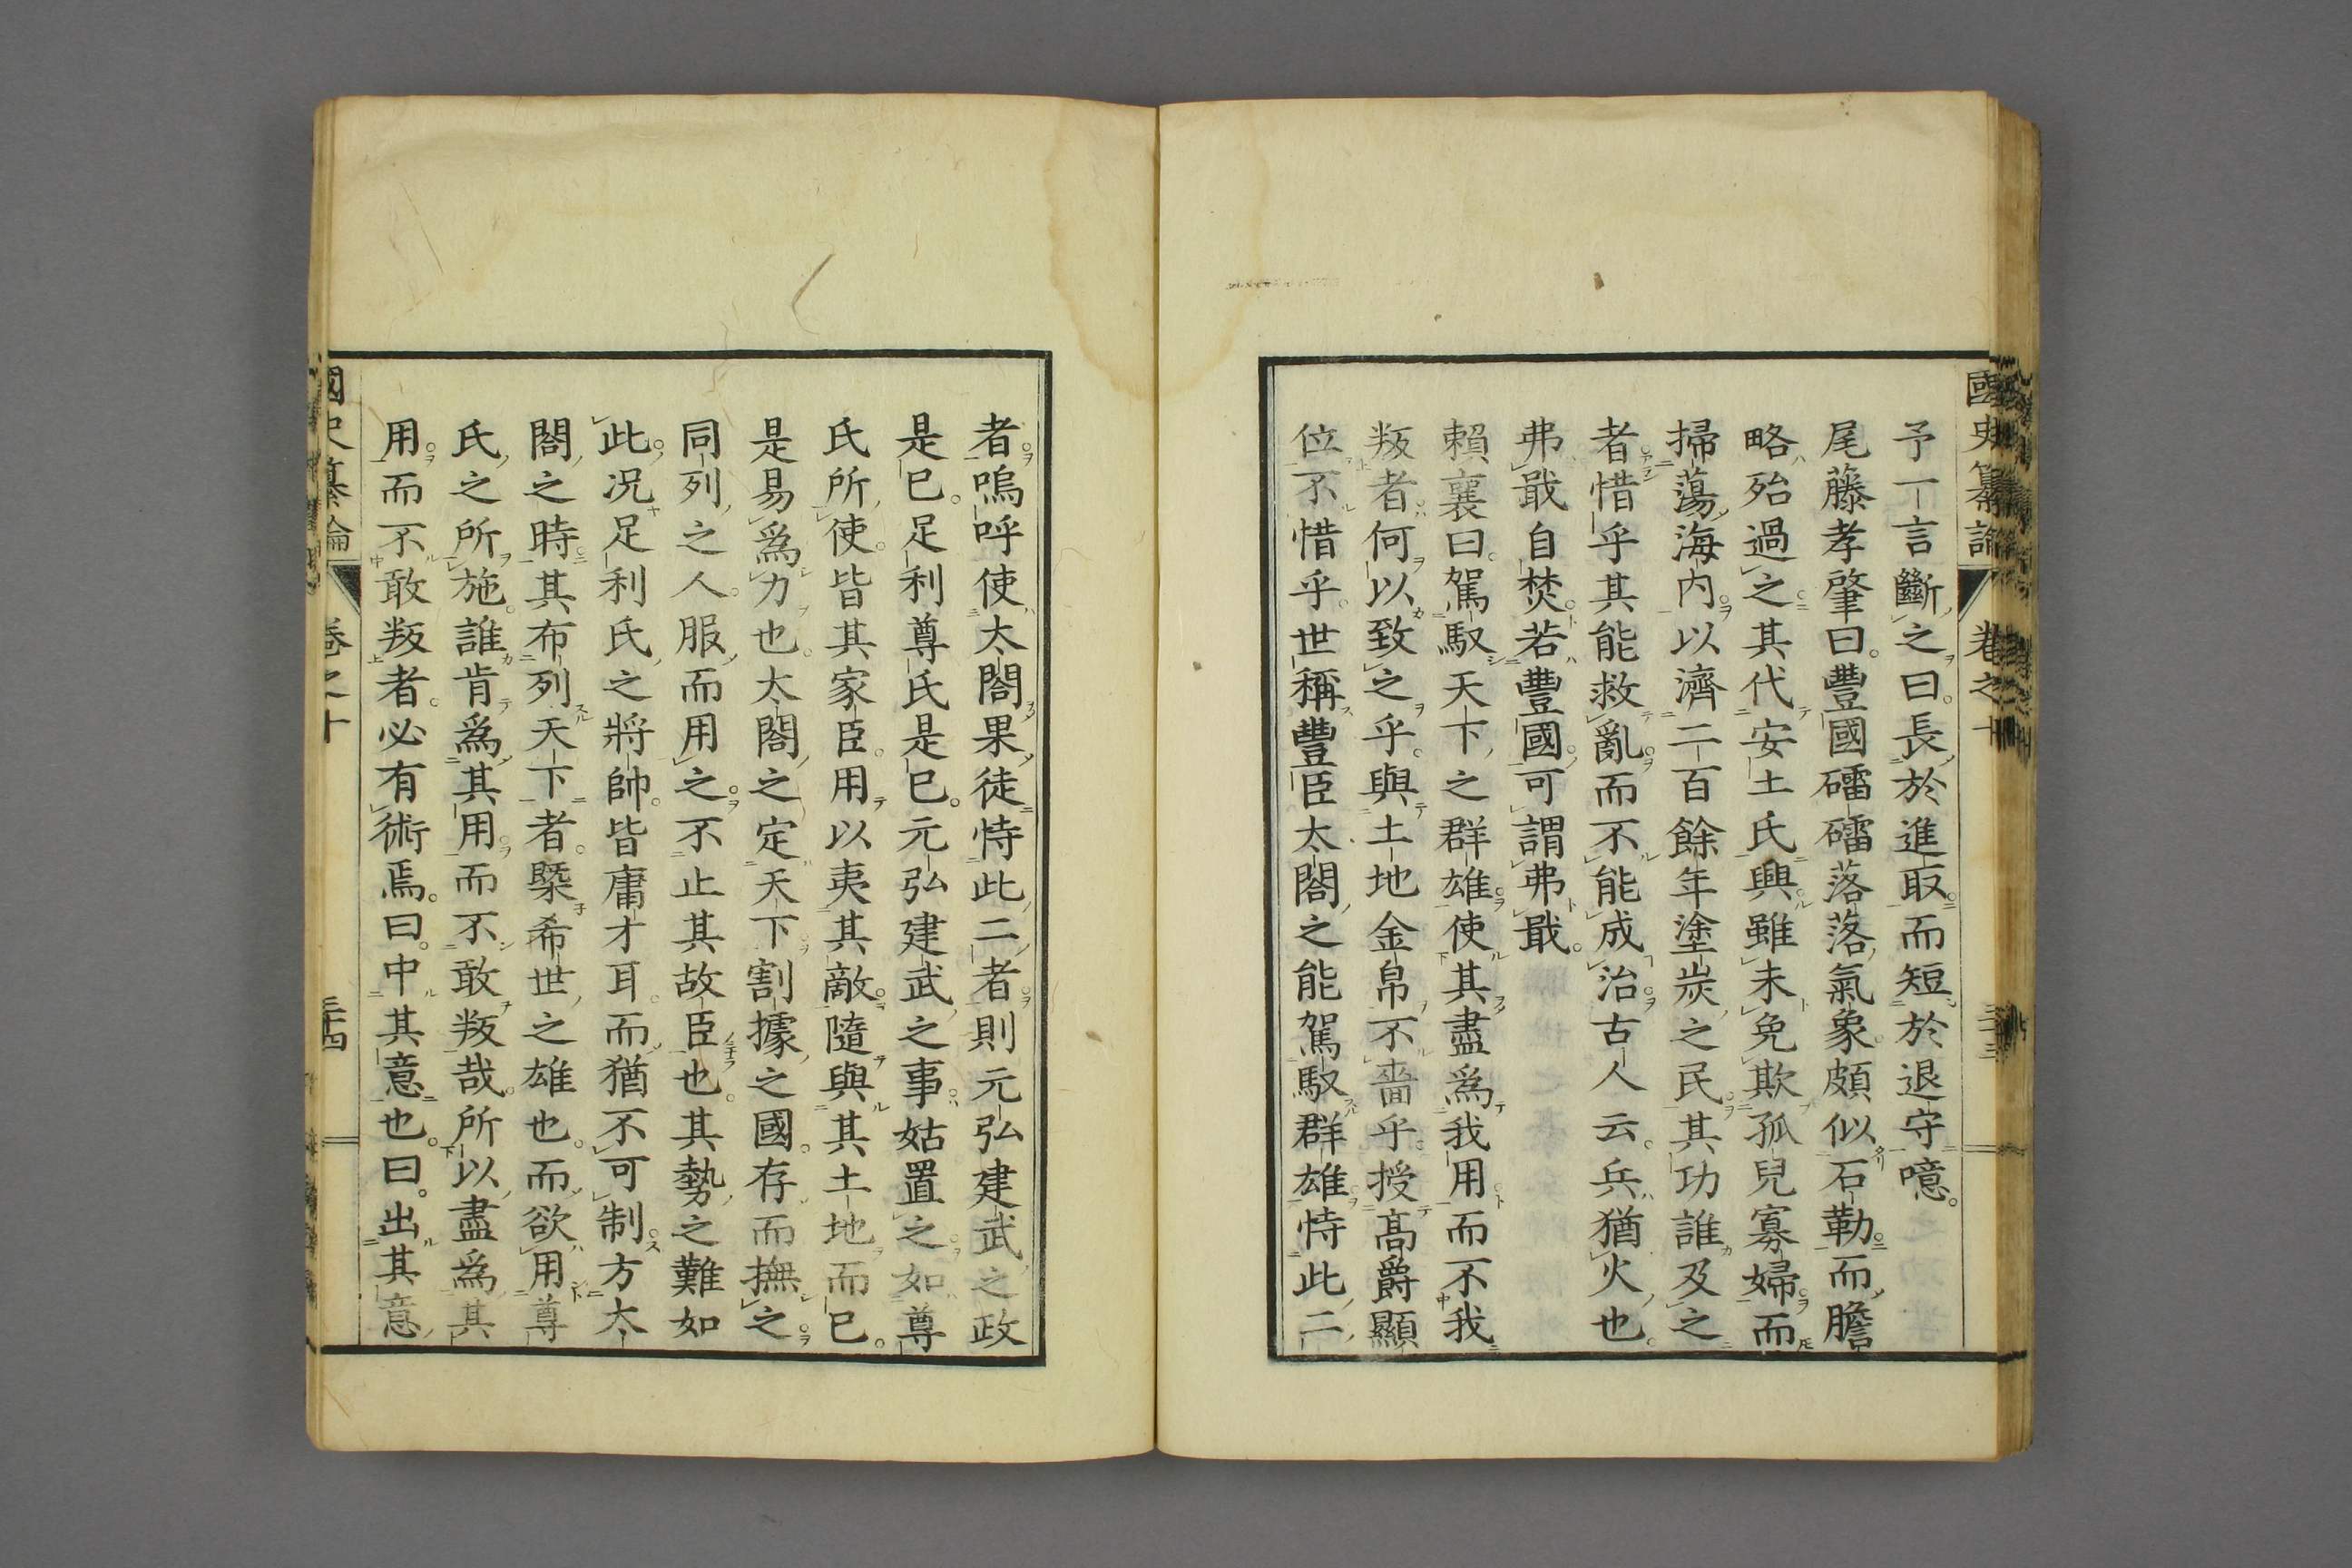 國史纂論 卷之十 三十三
予一言斷之曰。長於進取。而短於退守。噫。
尾藤孝肇曰。豐國礌礌落落。氣象頗似石勒。而膽
略殆過之。其代安土氏興。雖未免欺孤兒寡婦。而
掃蕩海內。以濟二百餘年塗炭之民。其功誰及之
者。惜乎其能救亂。而不能成治。古人云。兵猶火也。
弗戢自焚。若豐國。可謂弗戢。
賴襄曰。駕馭天下之群雄。使其盡爲我用。而不我
叛者。何以致之乎。與土地金帛。不嗇乎。授高爵顯
位不惜乎。世稱豐臣太閤之能駕馭群雄。恃此二
者。嗚呼使太閤果徒恃此二者。則元弘建武之政
是已。足利尊氏是已。元弘建武之事。姑置之。如尊
氏所使。皆其家臣。用以夷其敵。隨與其土地而已。
是易爲力也。太閤之定天下。割據之國。存而撫之。
同列之人。服而用之。不止其故臣也。其勢之難如
此。況足利氏之將帥。皆庸才耳。而猶不可制。方太
閤之時。其布列天下者。槩希世之雄也。而欲用尊
氏之所施。誰肯爲其用。而不敢叛哉。所以盡爲其
用。而不敢叛者。必有術焉。曰。中其意也。曰。出其意
國史纂論 卷之十 三十四